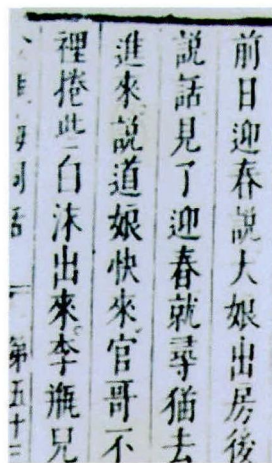 前日迎春說大娘出房後
說話見了迎春就尋猶去
進來說道娘快來官哥不
裡捲些白沫出來李瓶兒
第五十